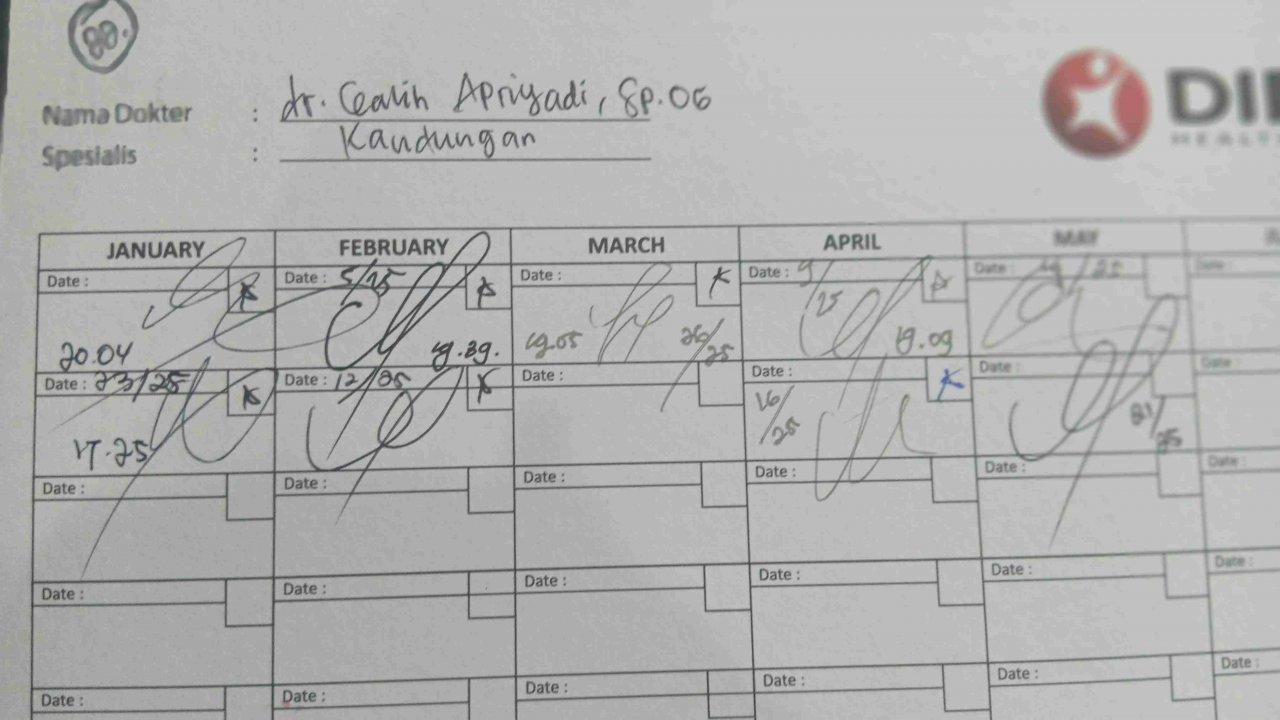 80.
Nama Dokter : dr. Galih Apriyadi, Sp.OG
Spesialis : Kandungan
DI
HEALT
JANUARY FEBRUARY MARCH APRIL MAY
Date : Date : 5/25 Date : Date : 9/25 Date : 14/25 Date :
20.04 19.39. 19.05 26/25 19.09
Date : 23/25 Date : 12/25 Date : Date : Date : Date :
17.25 16/25 21/25
Date : Date : Date : Date : Date : Date :
Date : Date : Date : Date : Date : Date :
Date : Date : Date : Date : Date : Date :